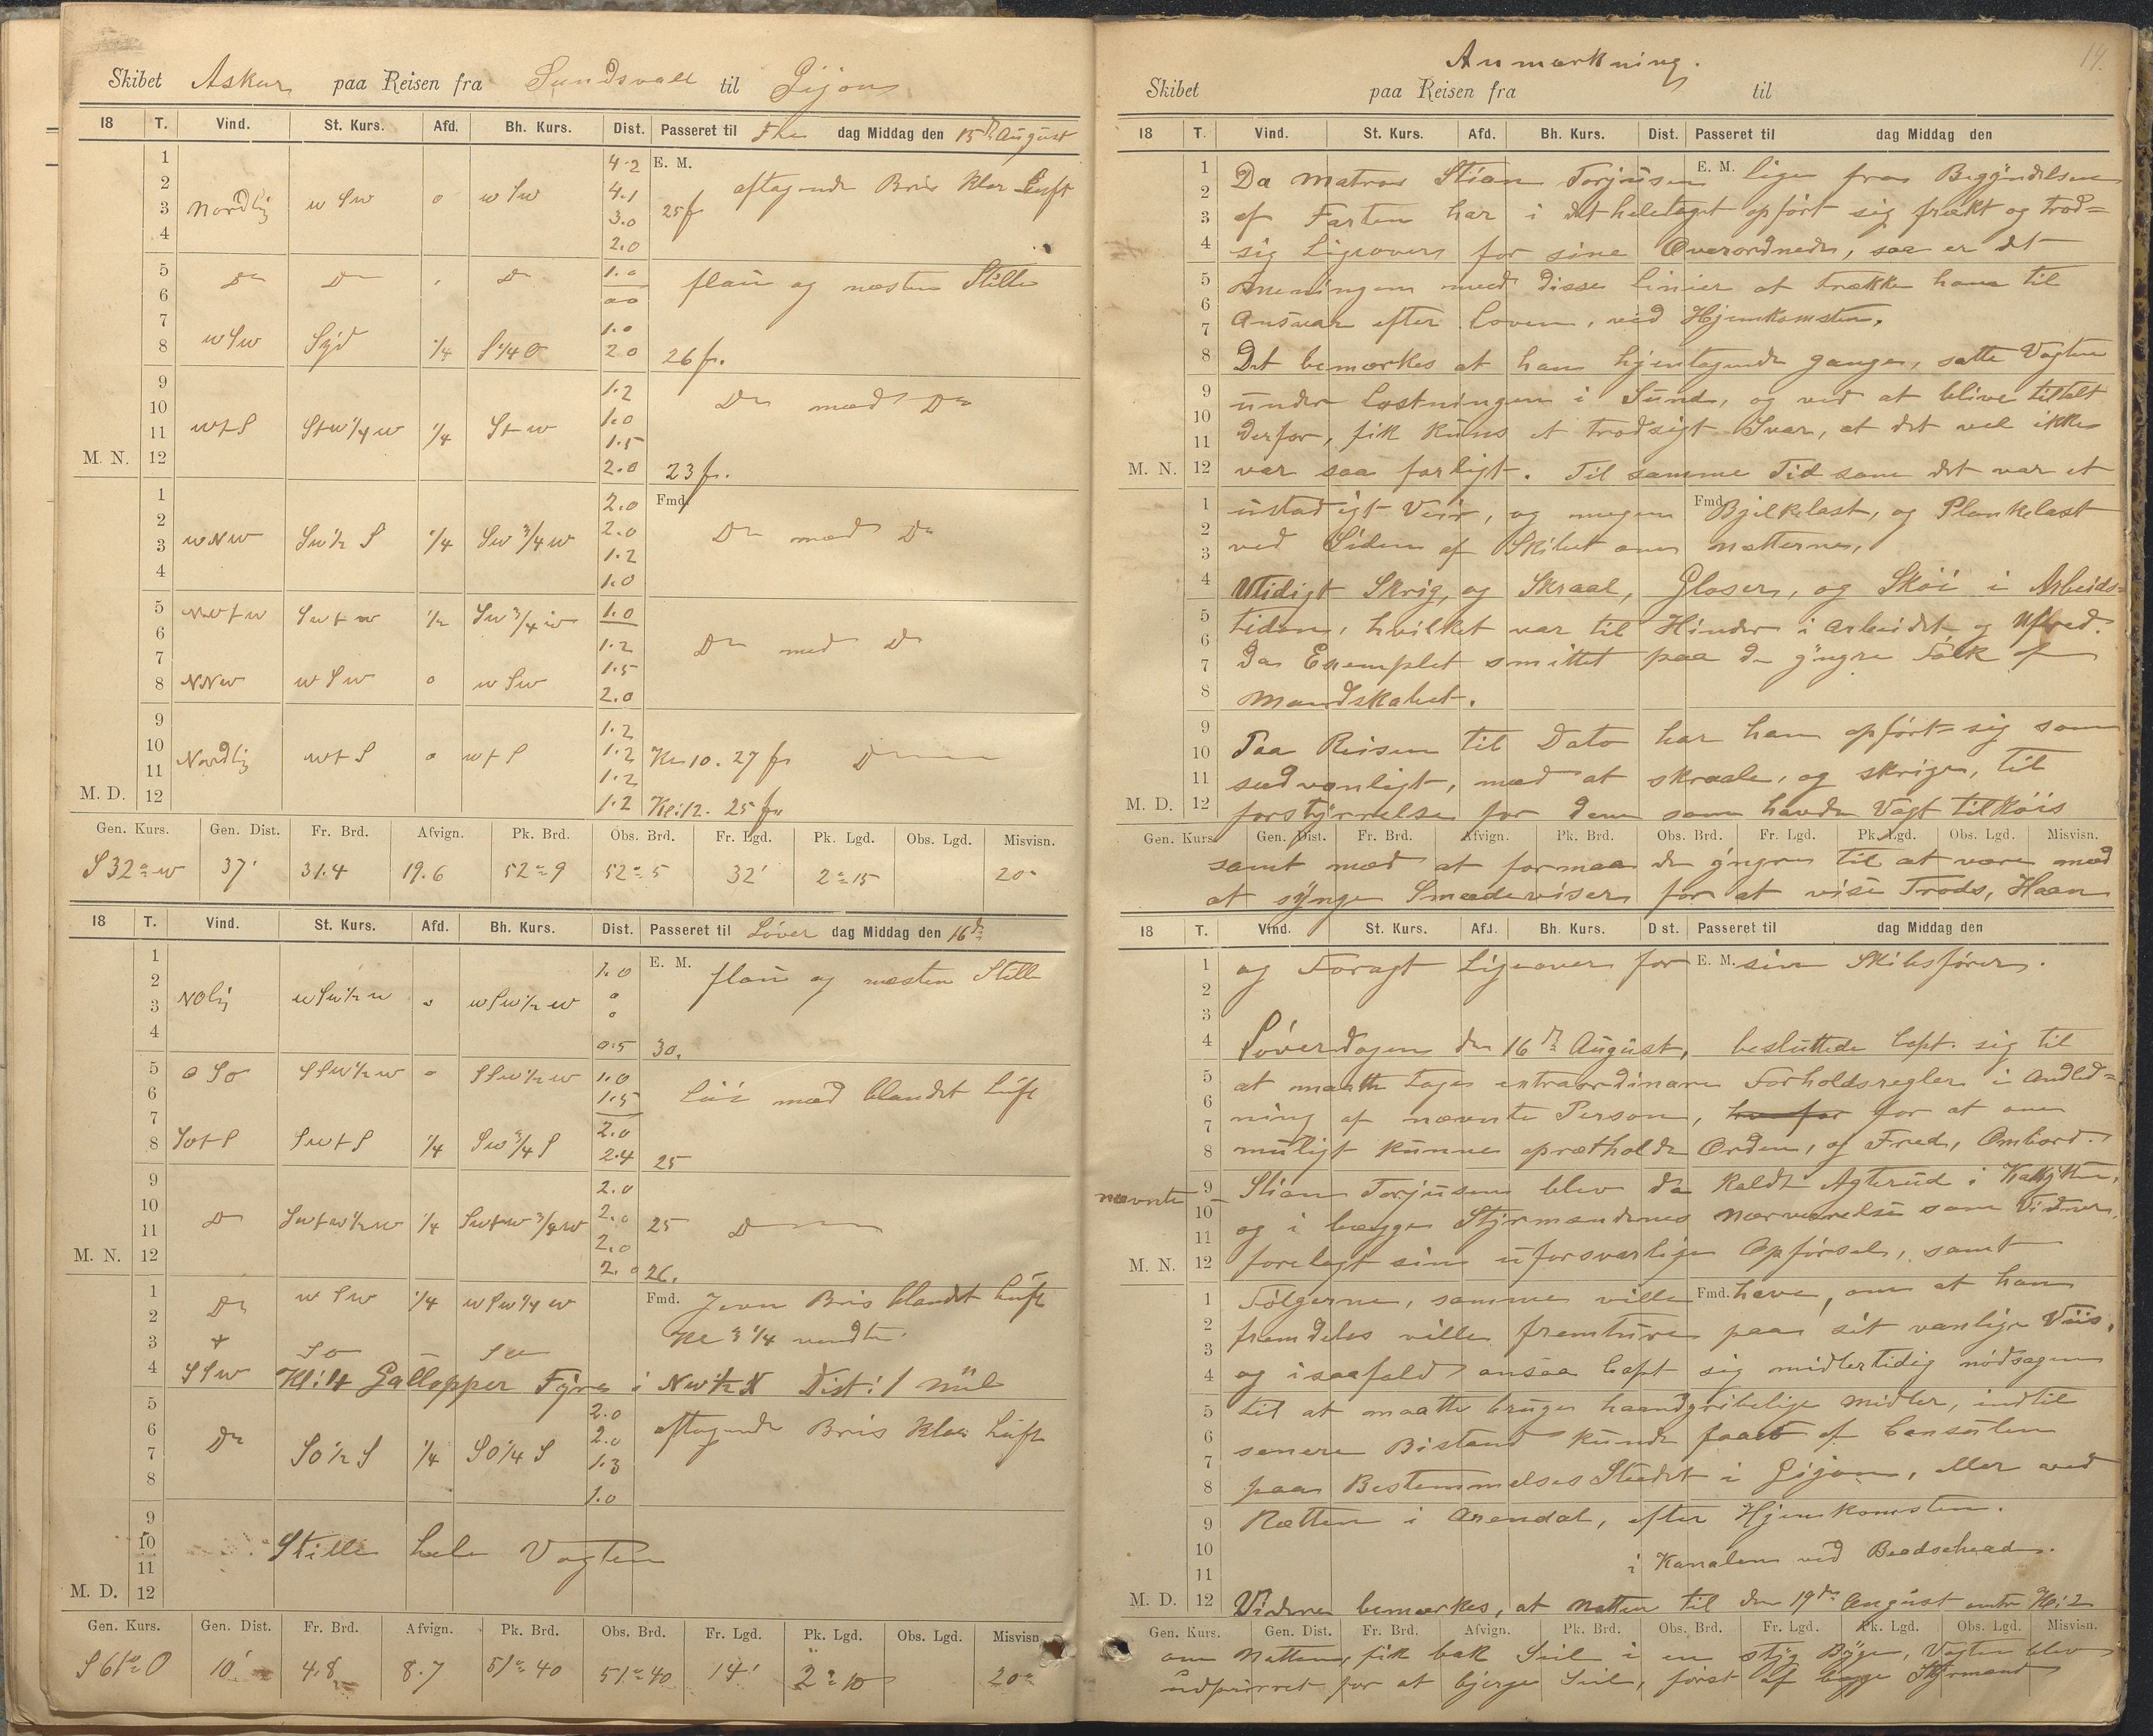 Skibet Askur paa Reisen fra Sundsvall til Gijon
18 T. Vind. St. Kurs. Afd. Bh. Kurs. Dist. Passeret til Fre dag Middag den 15de August
1 4.2 E. M.
2 4.1 aftagende Bris klar Luft
3 Nordlig w Sw o w Sw 3.0 25 f
4 2.0
5 Do Do Do 1.0 flau og næsten Stille
6 00
7 wSw Syd 1/4 S 1/4 O 1.0
8 2.0 26 fv.
9 1.2 Do med Do
10 1.0
11 wtS Stw 1/4 w 1/4 Stw 1.5
M. N. 12 2.0 23 fv.
1 2.0 Fmd.
2 2.0 Do med Do
3 wNw Sw 1/2 S 1/4 Sw 3/4 w 1.2
4 1.0
5 Nwtw Swtw 1/2 Sw 3/4 w 1.0
6 1.2 Do med Do
7 1.5
8 NNw w Sw o w Sw 2.0
9 1.2
10 Nordlig wtS o wtS 1.2 Kl 10. 27 fv Do
11 1.2
M. D. 12 1.2 Kl: 12. 25 fv
Gen. Kurs. Gen. Dist. Fr. Brd. Afvign. Pk. Brd. Obs. Brd. Fr. Lgd. Pk. Lgd. Obs. Lgd. Misvisn.
S 32° w 37' 31.4 19.6 52° 9 52° 5 32' 2° 15 20°
18 T. Vind. St. Kurs. Afd. Bh. Kurs. Dist. Passeret til Löver dag Middag den 16de
1 1.0 E. M. flau og næsten Stille
2 o
3 NOlig wSw 1/2 w o wSw 1/2 w o
4 0.5 30.
5 O So SSw 1/2 w o SSw 1/2 w 1.0
6 1.5 med blandet Luft
7 2.0
8 SotS SwtS 1/4 Sw 3/4 S 2.4 25
9 2.0
10 Do Swtw 1/2 w 1/4 Swtw 3/4 w 2.0 25 Do
11 2.0
M. N. 12 2.0 26.
1 Do w Sw 1/4 wSw 1/4 w Fmd. Jevn Bris blandet Luft
2 Kl 3 1/4 vendte.
3 + So So
4 SSw Kl: 4 Gallopper Fyre i Nw 1/2 N Dist: 1 Mil
5 2.0
6 Do So 1/2 S 1/4 SO 1/4 S 2.0 aftagende Bris klar Luft
7 1.3
8 1.0
9
10 Stille hele Vagten
11
M. D. 12
Gen. Kurs. Gen. Dist. Fr. Brd. Afvign. Pk. Brd. Obs. Brd. Fr. Lgd. Pk. Lgd. Obs. Lgd. Misvisn.
S 61° O 10' 4.8 8.7 51° 40 51° 40 14' 2° 10 20°
14.
Anmærkning.
Skibet paa Reisen fra til
18 T. Vind. St. Kurs. Afd. Bh. Kurs. Dist. Passeret til dag Middag den
1 Da Matros Stian Torjusen E. M. lige fra Begyndelsen
2 af Farten har i det heletaget opfört sig frækt og trod=
3 sig Ligeovers for sine Overordnede, saa er det
4
5 Meningen med disse linier at Trække ham til
6 Ansvar efter Loven, ved Hjemkomsten.
7
8 Det bemærkes at han gjentagende gange, satte Vagten
9 under Lastningen i Sund, og ved at blive tiltalt
10 derfor, fik kuns et trodsigt Svar, at det vel ikke
11
M. N. 12 var saa farligt. Til samme Tid som det var et
1 ustadigt Veir, og megen Fmd. Bjelkelast, og Plankelast
2 ved Siden af Skibet om Nætterne.
3
4 Utidigt Skrig, og Skraal, Gloser, og Stöi i Arbeids=
5 tiden, hvilket var til Hinder i Arbeidet og Ufred.
6 Da Exemplet smittet paa de yngre Folk af
7
8 Mandskabet.
9 Paa Reisen til Dato har han opfört sig som
10
11 sædvanligt, med at skraale, og skrige, til
M. D. 12 forstyrrelse for dem som havde Vagt tilköis
Gen. Kurs. Gen. Dist. Fr. Brd. Afvign. Pk. Brd. Obs. Brd. Fr. Lgd. Pk. Lgd. Obs. Lgd. Misvisn.
samt med at formaa de yngre til at være med
at synge Smædeviser for at vise Trods, Haan
18 T. Vind. St. Kurs. Afd. Bh. Kurs. Dist. Passeret til dag Middag den
1 og Foragt Ligeover for E. M. sin Skibsförer.
2
3
4 Löverdagen den 16de August, besluttede Capt. sig til
5 at maatte tage extraordinære Forholdsregler i Andled=
6 ning af nævnte Person, hvorfor for at om
7
8 muligt kunne opretholde Orden, og Fred, Ombord.
nævnte 9 Stian Torjusen blev da kaldt Agterud i Kahytten,
10 og i begge Styrmændenes Nærværelse som Vidner,
11
M. N. 12 forelagt sin uforsvarlige Opförsel, samt
1 Fölgerne, samme ville Fmd. have, om at han
2 fremdeles ville fremture paa sit vanlige Viis,
3
4 og isaafald ansaa Capt sig midlertidig nödsagen
5 til at maatte bruge haandgribelige Midler, indtil
6 senere Bistand kunde faaes af Consulen
7
8 paa Bestemmelses Stedet i Gijon, eller ved
9 Retten i Arendal, efter Hjemkomsten.
10 i Kanalen ved Beadsehead.
11
M. D. 12 Videre bemærkes, at Natten til den 19de August Kl: 2
Gen. Kurs. Gen. Dist. Fr. Brd. Afvign. Pk. Brd. Obs. Brd. Fr. Lgd. Pk. Lgd. Obs. Lgd. Misvisn.
om Natten, fik bak Seil i en styg Byge, Vagten blev
udpurret for at bjerge Seil, först af begge Styrmænd